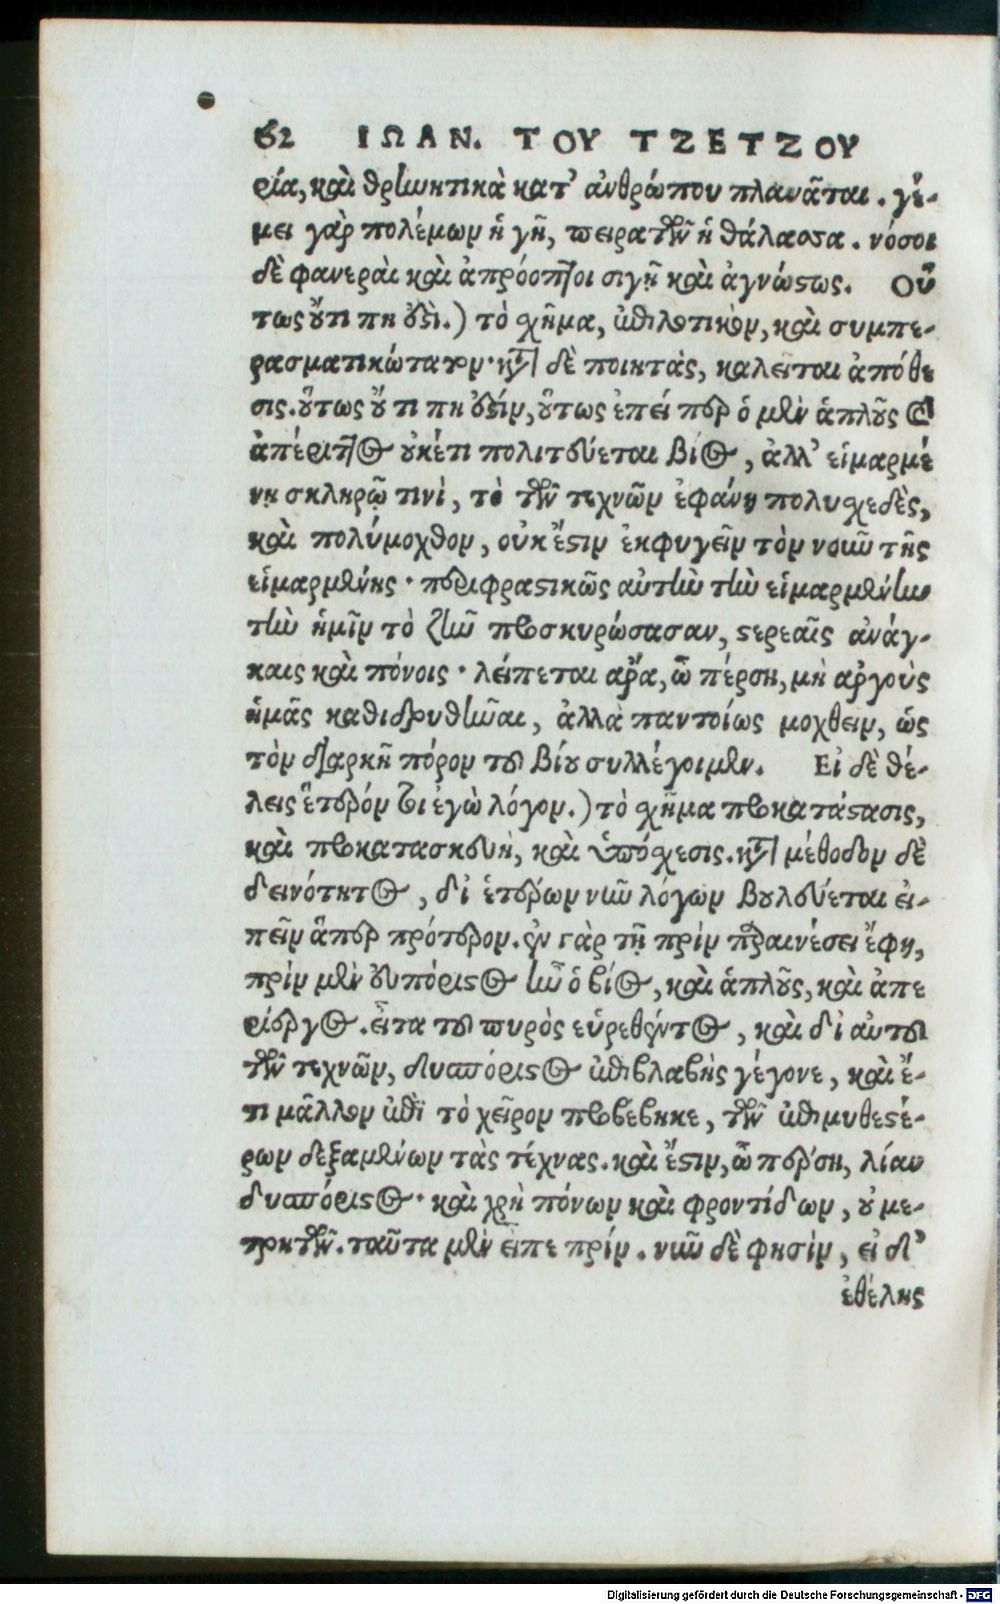 62 ΙΩΑΝ. ΤΟΥ ΤΖΕΤΖΟΥ
ρία, καὶ θρηνητικὰ κατ' ἀνθρώπου πλανᾶται. γέ-
μει γὰρ πολέμων ἡ γῆ, πειρατῶν ἡ θάλασσα. νόσοι
δὲ φανεραὶ καὶ ἀπρόοπτοι σιγῇ καὶ ἀγνώστως. Οὕ
τως οὔτι πη ἐστὶ.) τὸ σχῆμα, ἐπιλοτικὸν, καὶ συμπε-
ρασματικώτατον· κατὰ δὲ ποιητὰς, καλεῖται ἀπόθε
σις. οὕτως οὔ τι πη ἐστίν, οὕτως ἐπεί περ ὁ μὲν ἁπλοῦς καὶ
ἀπέριττος οὐκέτι πολιτεύεται βίος, ἀλλ' εἱμαρμέ
νῃ σκληρᾷ τινὶ, τὸ τῶν τεχνῶν ἐφάνη πολυσχεδὲς,
καὶ πολύμοχθον, οὐκ ἔστιν ἐκφυγεῖν τὸν νοῦν τῆς
εἱμαρμένης· περιφραστικῶς αὐτὴν τὴν εἱμαρμένην
τὴν ἡμῖν τὸ ζῆν προσκυρώσασαν, στερεαῖς ἀνάγ-
καις καὶ πόνοις· λείπεται ἄρα, ὦ πέρση, μὴ ἀργοὺς
ἡμᾶς καθιδρυθῆναι, ἀλλὰ παντοίως μοχθεῖν, ὡς
τὸν διαρκῆ πόρον τοῦ βίου συλλέγοιμεν. Εἰ δὲ θέ-
λεις ἕτερόν τοι ἐγὼ λόγον.) τὸ σχῆμα προκατάστασις,
καὶ προκατασκευὴ, καὶ ὑπόσχεσις. κατὰ μέθοδον δὲ
δεινότητος, δι' ἑτέρων νῦν λόγων βουλεύεται εἰ-
πεῖν ἅπερ πρότερον. ἐν γὰρ τῇ πρὶν παραινέσει ἔφη,
πρὶν μὲν εὐπόριστος ἦν ὁ βίος, καὶ ἁπλοῦς, καὶ ἀπε
ρίεργος. εἶτα τοῦ πυρὸς εὑρεθέντος, καὶ δι' αὐτοῦ
τῶν τεχνῶν, δυσπόριστος ἐπιβλαβὴς γέγονε, καὶ ἔ-
τι μᾶλλον ἐπὶ τὸ χεῖρον προβέβηκε, τῶν ἐπιμυθεστέ-
ρων δεξαμένων τὰς τέχνας. καὶ ἔστιν, ὦ πέρση, λίαν
δυσπόριστος· καὶ χρὴ πόνων καὶ φροντίδων, οὐ με-
τρητῶν. ταῦτα μὲν εἶπε πρίν. νῦν δὲ φησὶν, εἰ δ'
ἐθέλῃς
Digitalisierung gefördert durch die Deutsche Forschungsgemeinschaft - DFG